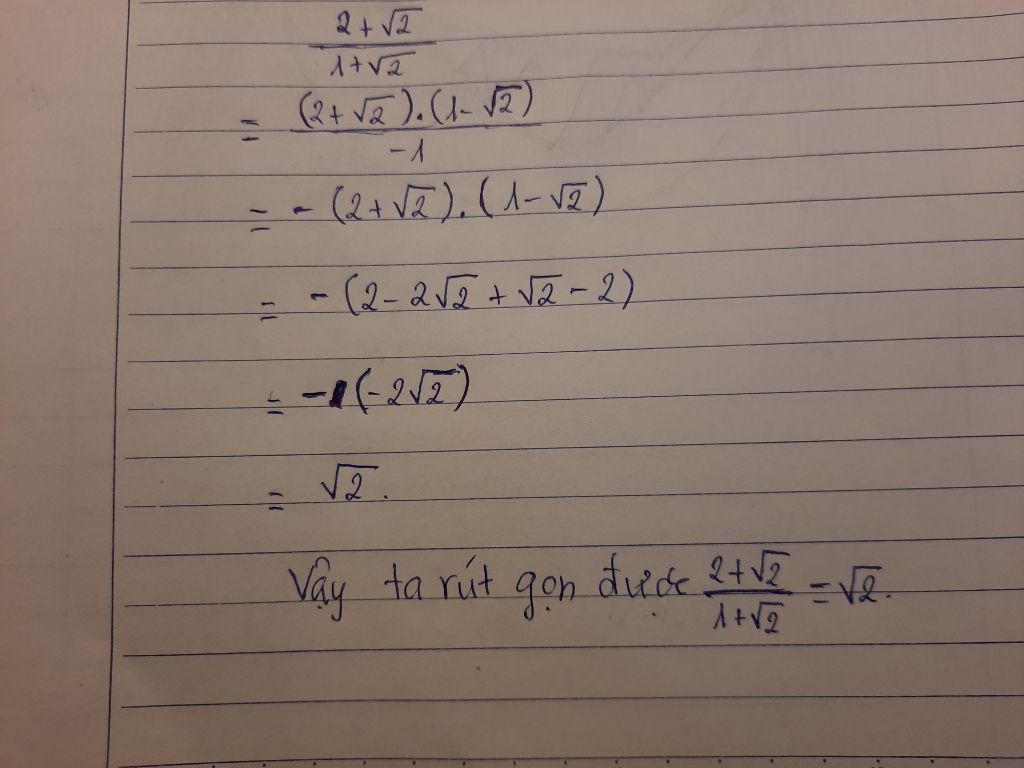 (2+√2)/(1+√2)
= ((2+√2).(1-√2))/(-1)
= - (2+√2).(1-√2)
= - (2-2√2+√2-2)
= -1(-2√2)
= √2.
Vậy ta rút gọn được (2+√2)/(1+√2) = √2.